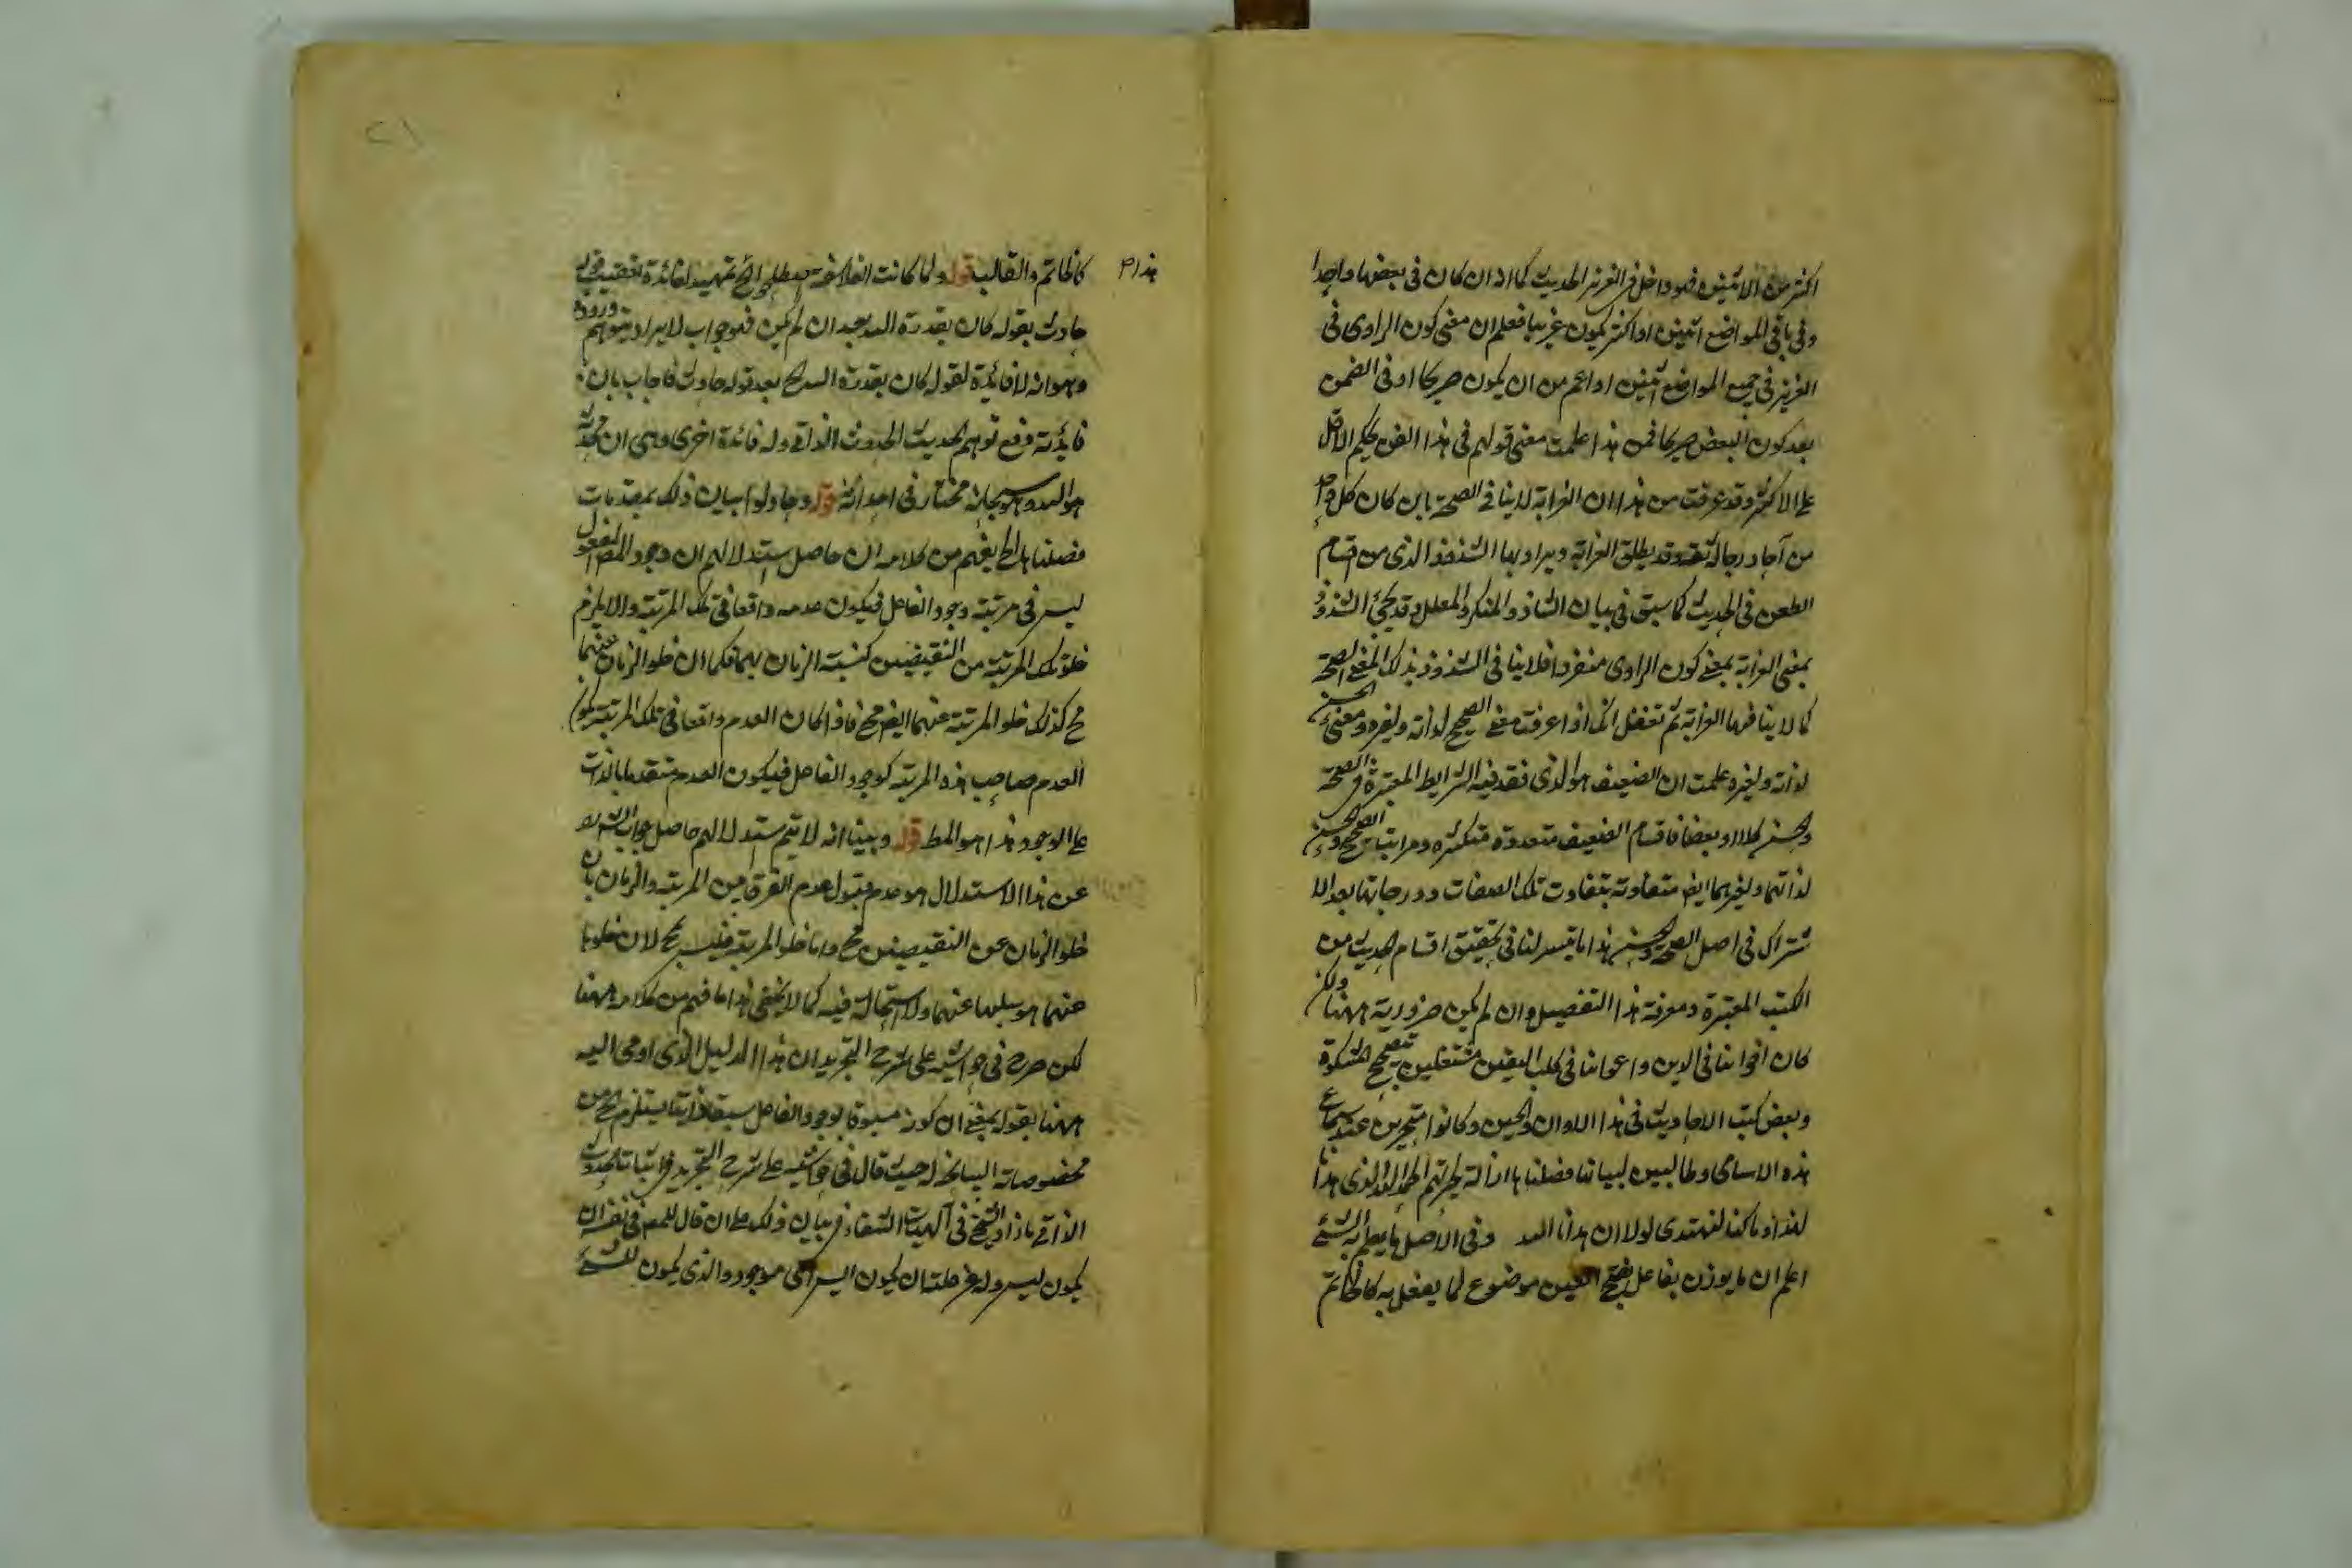 اكثر من الاثنين فهو داخل في العزيز الحديث كما اذ ان كان في بعضها واحدا
وفي باقي المواضع اثنين او اكثر يكون غريبا فعلم ان معنى كون الراوى في
العزيز في جميع المواضع اثنين او اعم من ان يكون صريحا او في الضمن
بعد كون البعض صريحا فمن هذا علمت معنى قولهم في هذا الفن يحكم الاقل
على الاكثر وقد عرفت من هذا ان الغرابة لا ينافي الصحة بان كان كل واحد
من آحاد رجاله ثقة وقد يطلق الغرابة ويراد بها الشذوذ الذى من اقسام
الطعن في الحديث كما سبق في بيان الشاذ والمنكر والمعلل وقد يجئ الشذوذ
بمعنى الغرابة بمعنى كون الراوى منفردا فلا ينافي الشذوذ بذلك المعنى الصحة
كما لا ينافيها الغرابة ثم تغفل انك اذا عرفت معنى الصحيح لذاته ولغيره ومعنى الحسن
لذاته ولغيره علمت ان الضعيف هو الذى فقد فيه الشرايط المعتبرة في الصحة
والحسن كلا او بعضا فاقسام الضعيف متعددة متكثره ومراتب الصحيح والحسن
لذاتهما ولغيرهما ايضا متفاوتة بتفاوت تلك الصفات ودرجاتها بعد الا
شتراك في اصل الصحة والحسن هذا ما تيسر لنا في تحقيق اقسام الحديث من
الكتب المعتبرة ومعرفة هذا التفصيل وان لم يكن ضرورية ههنا ولكن
كان اخواننا في الدين واعواننا في طلب اليقين مشتغلين بتصحيح المشكوة
وبعض كتب الاحاديث في هذا الاوان والحين وكانوا متحيرين عند سماع
هذه الاسامى وطالبين لبيانها فصلناها ازالة لحيرتهم الحمد لله الذى هدانا
لهذا وما كنا لنهتدى لولا ان هدانا الله وفي الاصل ما يعلم به الشئ
اعلم ان ما يوزن بفاعل بفتح العين موضوع لما يفعل به كالخاتم
هذا م
كالخاتم والقالب قوله ولما كانت الفلاسفة يصطلحوا الخ تمهيد لفائدة تعقيب قوله
حادث بقوله كان بقدرة الله بعد ان لم يكن فهو جواب لايراد يتوهم وروده
وهو انه لا فائدة لقوله كان بقدرة الله الخ بعد قوله حادث فاجاب بان
فايدته دفع توهم الحديث الحدوث الذاتي وله فائدة اخرى وهى ان محدثه
هو الله وهو سبحانه مختار في احداثه قوله وحاولوا بيان ذلك بمقدمات
فصلناها الخ يفهم من كلامه ان حاصل استدلالهم ان وجود المفعول
ليس في مرتبة وجود الفاعل فيكون عدمه واقعا في تلك المرتبة والا يلزم
خلو تلك المرتبة من النقيضين كنسبة الزمان بهما فكما ان خلو الزمان عنهما
مح كذلك خلو المرتبة عنهما ايضا مح فاذا كان العدم واقعا في تلك المرتبة يكون
العدم صاحب هذه المرتبة كوجود الفاعل فيكون العدم متقدما بالذات
على الوجود هذا هو المط قوله وبينا انه لا يتم استدلالهم حاصل جواب الش
عن هذا الاستدلال هو عدم قبول عدم الفرق بين المرتبة والزمان بان
خلو الزمان عن النقيضين مح واما خلو المرتبة فليس مح لان خلوها
عنهما هو سلبها عنهما ولا استحالة فيه كما لا يخفى هذا ما فهم من كلامه ههنا
لكن صرح في حواشيه على شرح التجريد ان هذا الدليل الذى اومى اليه
ههنا بقوله بمعنى ان كونه مسبوقا بوجود الفاعل سبقا ذاتيا يستلزم الخ من
مخصوصاته السانحة له حيث قال في حاشيته على شرح التجريد في اثبات الحدوث
الذاتي ما زاد الشيخ في آلهيات الشفاء في بيان ذلك على ان قال للمعلول في نفسه ان
يكون ليس وله عن علته ان يكون ايس اى موجود والذى يكون للشئ